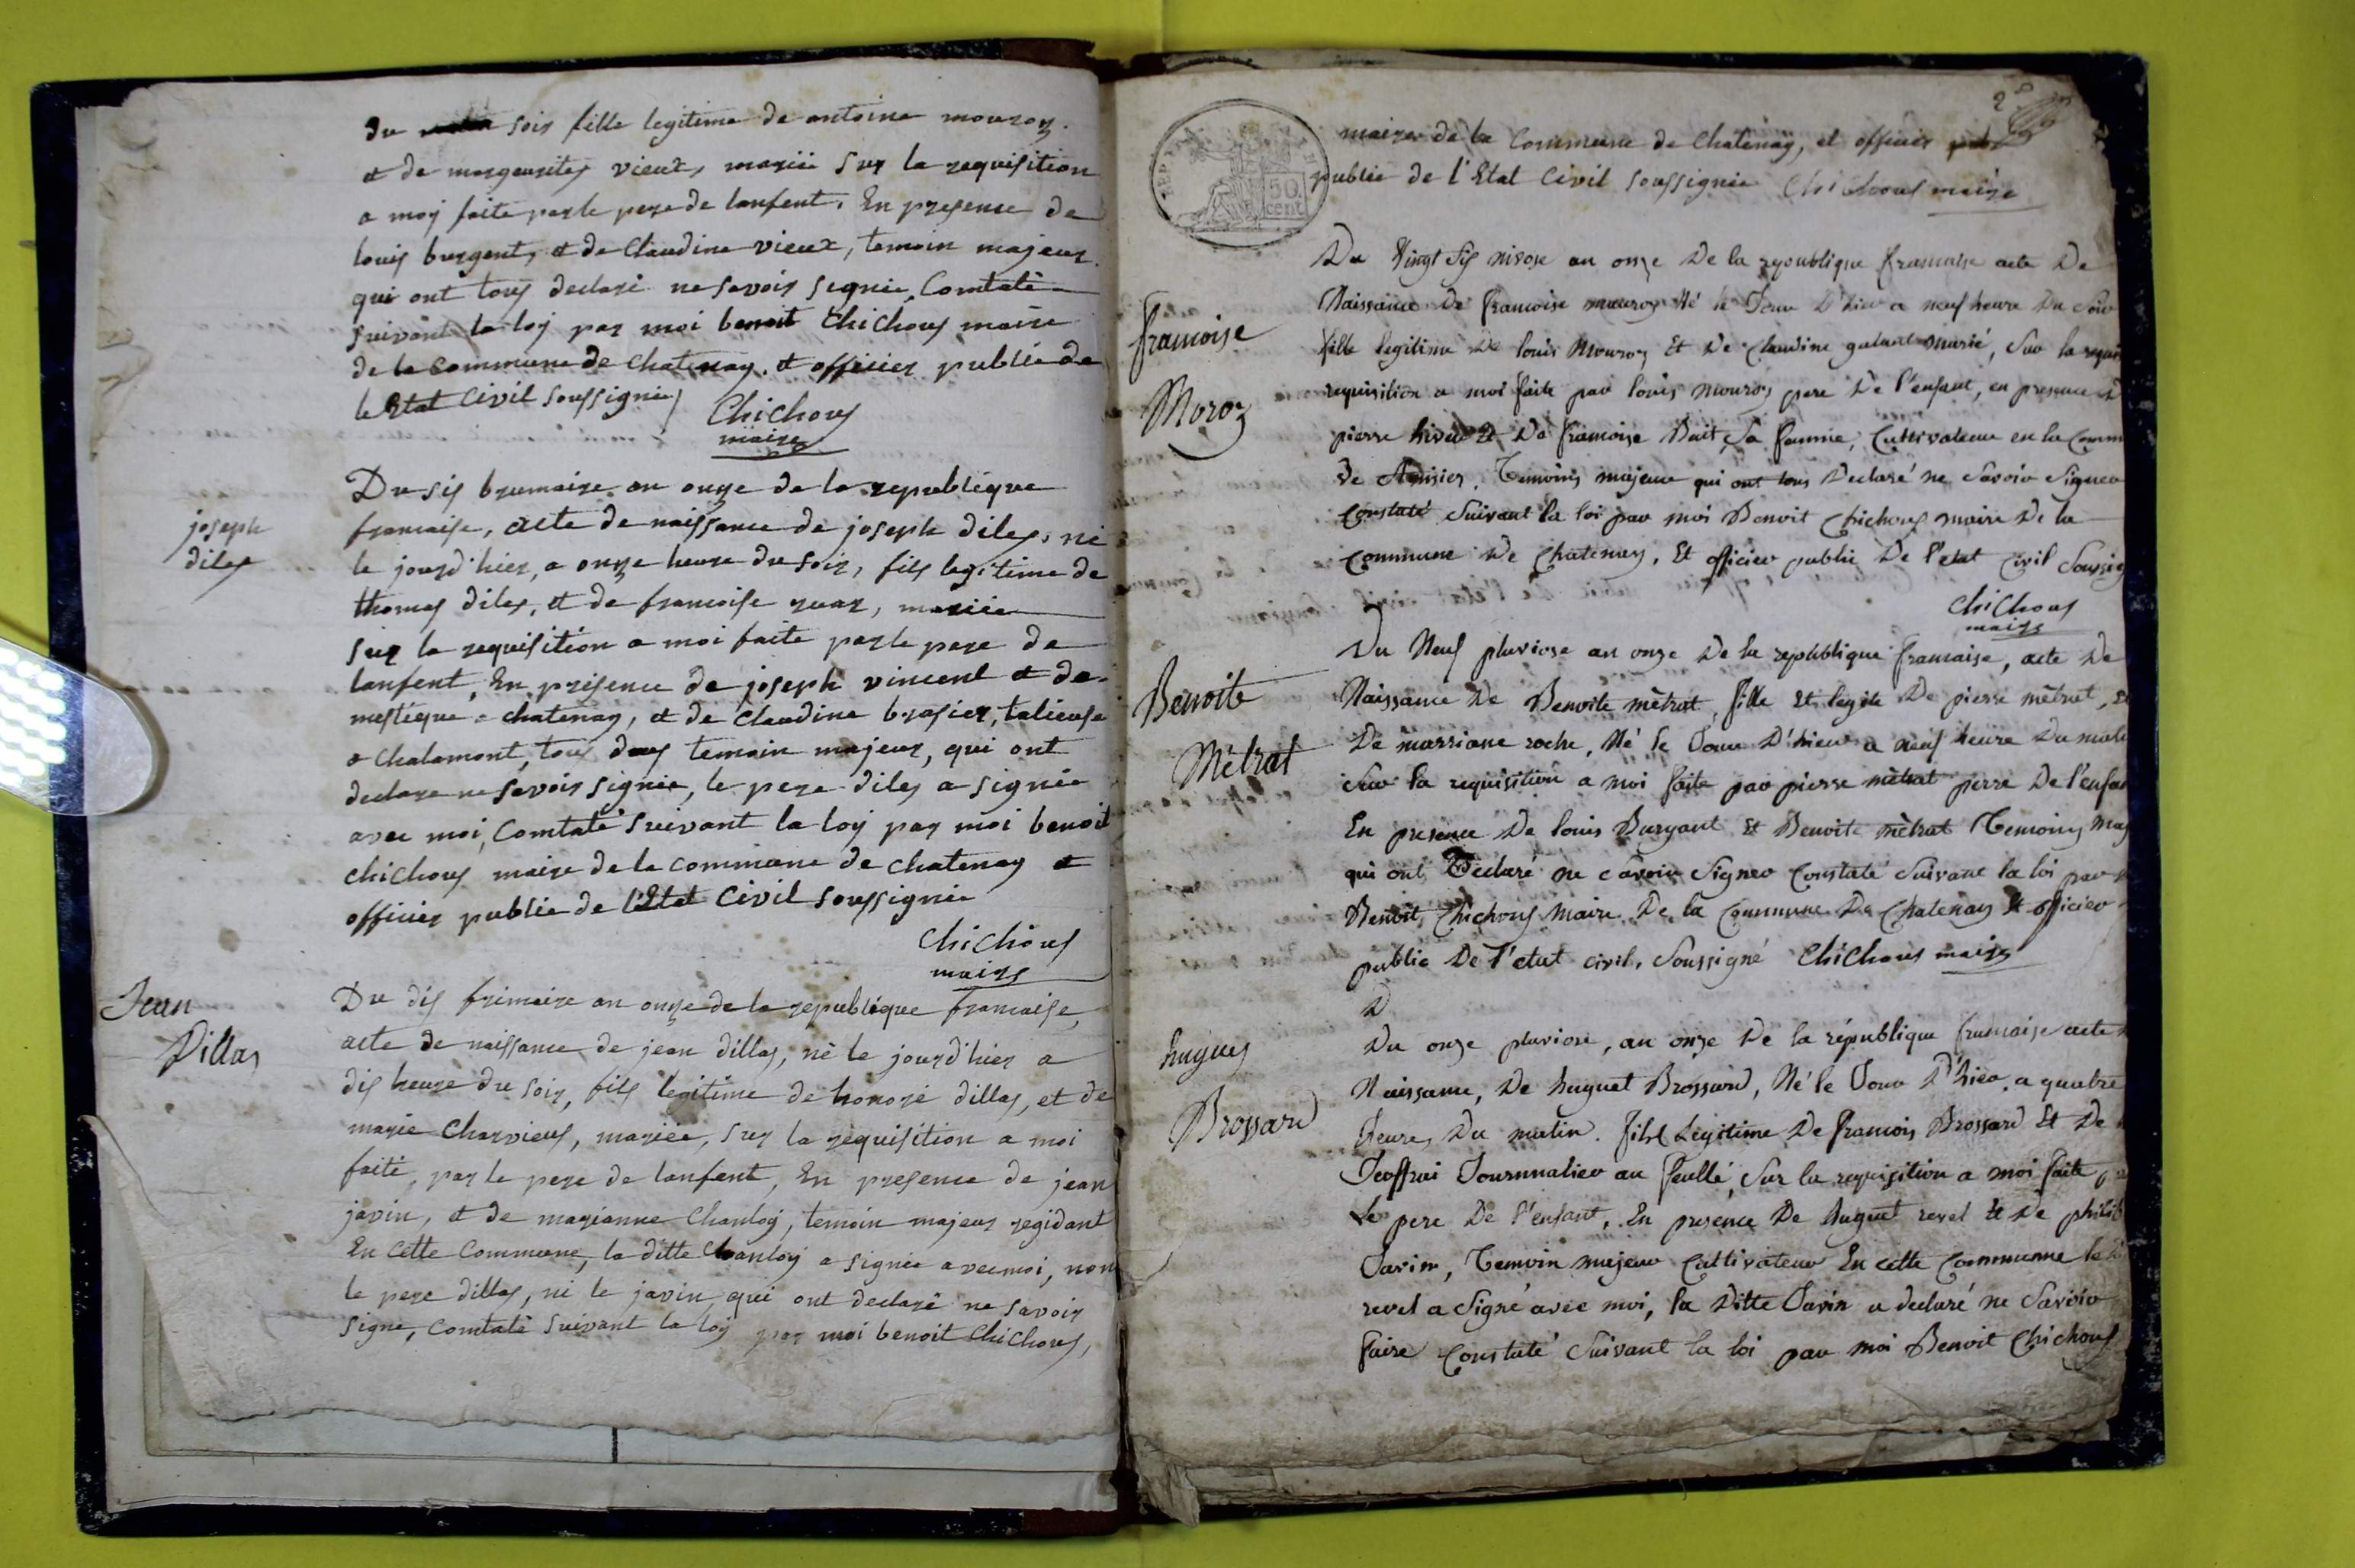 du soir fille legitime de antoine mouroz
et de margueritez vieux, mariéé sur la requisition
a moy faite par le pere de lanfent. En presence de
louis burgent, et de Claudine vieux, temoin majeur
qui ont tous declaré ne savoir signée, Comtaté
suivant la loy par moi benoit Chichoux maire
de la commune de chatenay. et officier publié de
le Etat Civil soussignée
Chichoux
maire
joseph
diles
Du six brumaire an onze de la republique
francaise, acte de naissance de joseph diles, né
le jourd'hier, a onze heure du soir, fils legitime de
thomas diles, et de francoise ruaz, mariée
sur la requisition a moi faite par le pere de
lanfent, En présence de joseph vincent et de
mestique a chatenay, et de Claudine brasier, talieuse
a Chalamont, tous deux temoin majeur, qui ont
declare ne savoir signée, le pere diles a signée
avec moi, Comtaté suivant la loy par moi benoit
chichoux maire de la commune de chatenay et
officier publie de l'Etat Civil soussignée
Chichoux
maire
Jean
Dillas
Du dix frimaire an onze de la republique francaise,
acte de naissance de jean dillas, né le jourd'hier a
dix heure du soir, fils legitime de honoré dillas, et de
marie Charvieux, mariée, sur la requisition a moi
faite, par le pere de lanfent, En presence de jean
javin, et de marianne Chanloy, temoin majeur regidant
En cette Commune, la ditte Chanloy a signée avec moi, non
le pere dillas, ni le javin, qui ont declaré ne savoir
signe, comtaté suivant la loy par moi benoit Chichoux,
2
maire de la Commune de Chatenay, et officier
publie de l'Etat Civil soussignée Chichoux maire
50
cent
francoise
Moroz
Du Vingt Six nivose an onze De la republique francaise acte De
Naissance De francoise mouroz Né le Jour D'hier a neuf heure Du Soir
fille legitime De louis Mouroz Et De Claudine galand marié, Sur la
requisition a moi faite par louis mouroz pere De l'enfant, en presence
pierre hivert Et De francoise Buit Sa famme, Cultivateur en la Comm
De Temoins majeur qui ont tous Declaré ne Savoir Signer
Constaté Suivant la loi par moi Benoit Chichoux maire De la
Commune De Chatenay, Et officier public De l'etat Civil Soussig
Chichoux
maire
Benoite
Mètrat
Du Neuf pluviose an onze De la republique francaise, acte De
Naissance De Benoite mètrat, fille Et legite De pierre mètrat, Et
De marriane roche, Né le Jour D'hier a neuf heure Du mati
Sur la requisition a moi faite par pierre mètrat perre De l'enfan
En presence De louis Burgant Et Benoite mètrat Temoins Maj
qui ont Declaré ne Savoir Signer Constaté Suivant la loi par
Benoit Chichoux Maire De la Commune De Chatenay Et officier
public De l'etat civil, Soussigné Chichoux maire
D
hugues
Brossard
Du onze pluviose, an onze De la république francaise acte
Naissance, De huguet Brossard, Né le Jour D'hier, a quatre
heures Du matin. fils Legitime De francois Brossard Et De
Jeoffrai Journnalier au feullé, Sur la requisition a moi faite
le pere De l'enfant, En presence De huguet revel Et De philib
Javin, Temoin majeur Cultivateur En cette Communne le
revel a Signé avec moi, la Ditte Javin a declaré ne Savoir
faire Constaté Suivant la loi par moi Benoit Chichoux